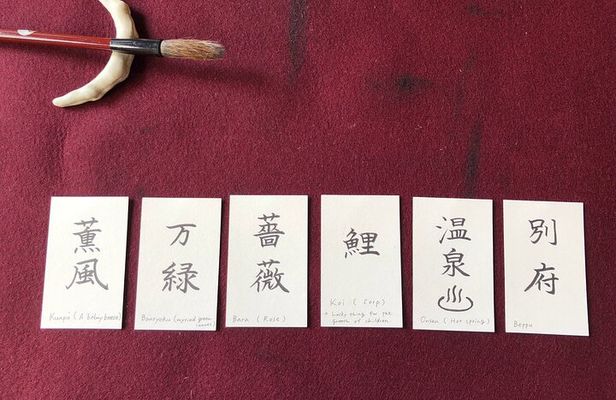 薫風
Kunpū (A balmy breeze)
万緑
Banryoku (myriad green leaves)
薔薇
Bara (Rose)
鯉
Koi (Carp)
Lucky thing for the
growth of children
温泉
♨
Onsen (Hot spring)
別府
Beppu